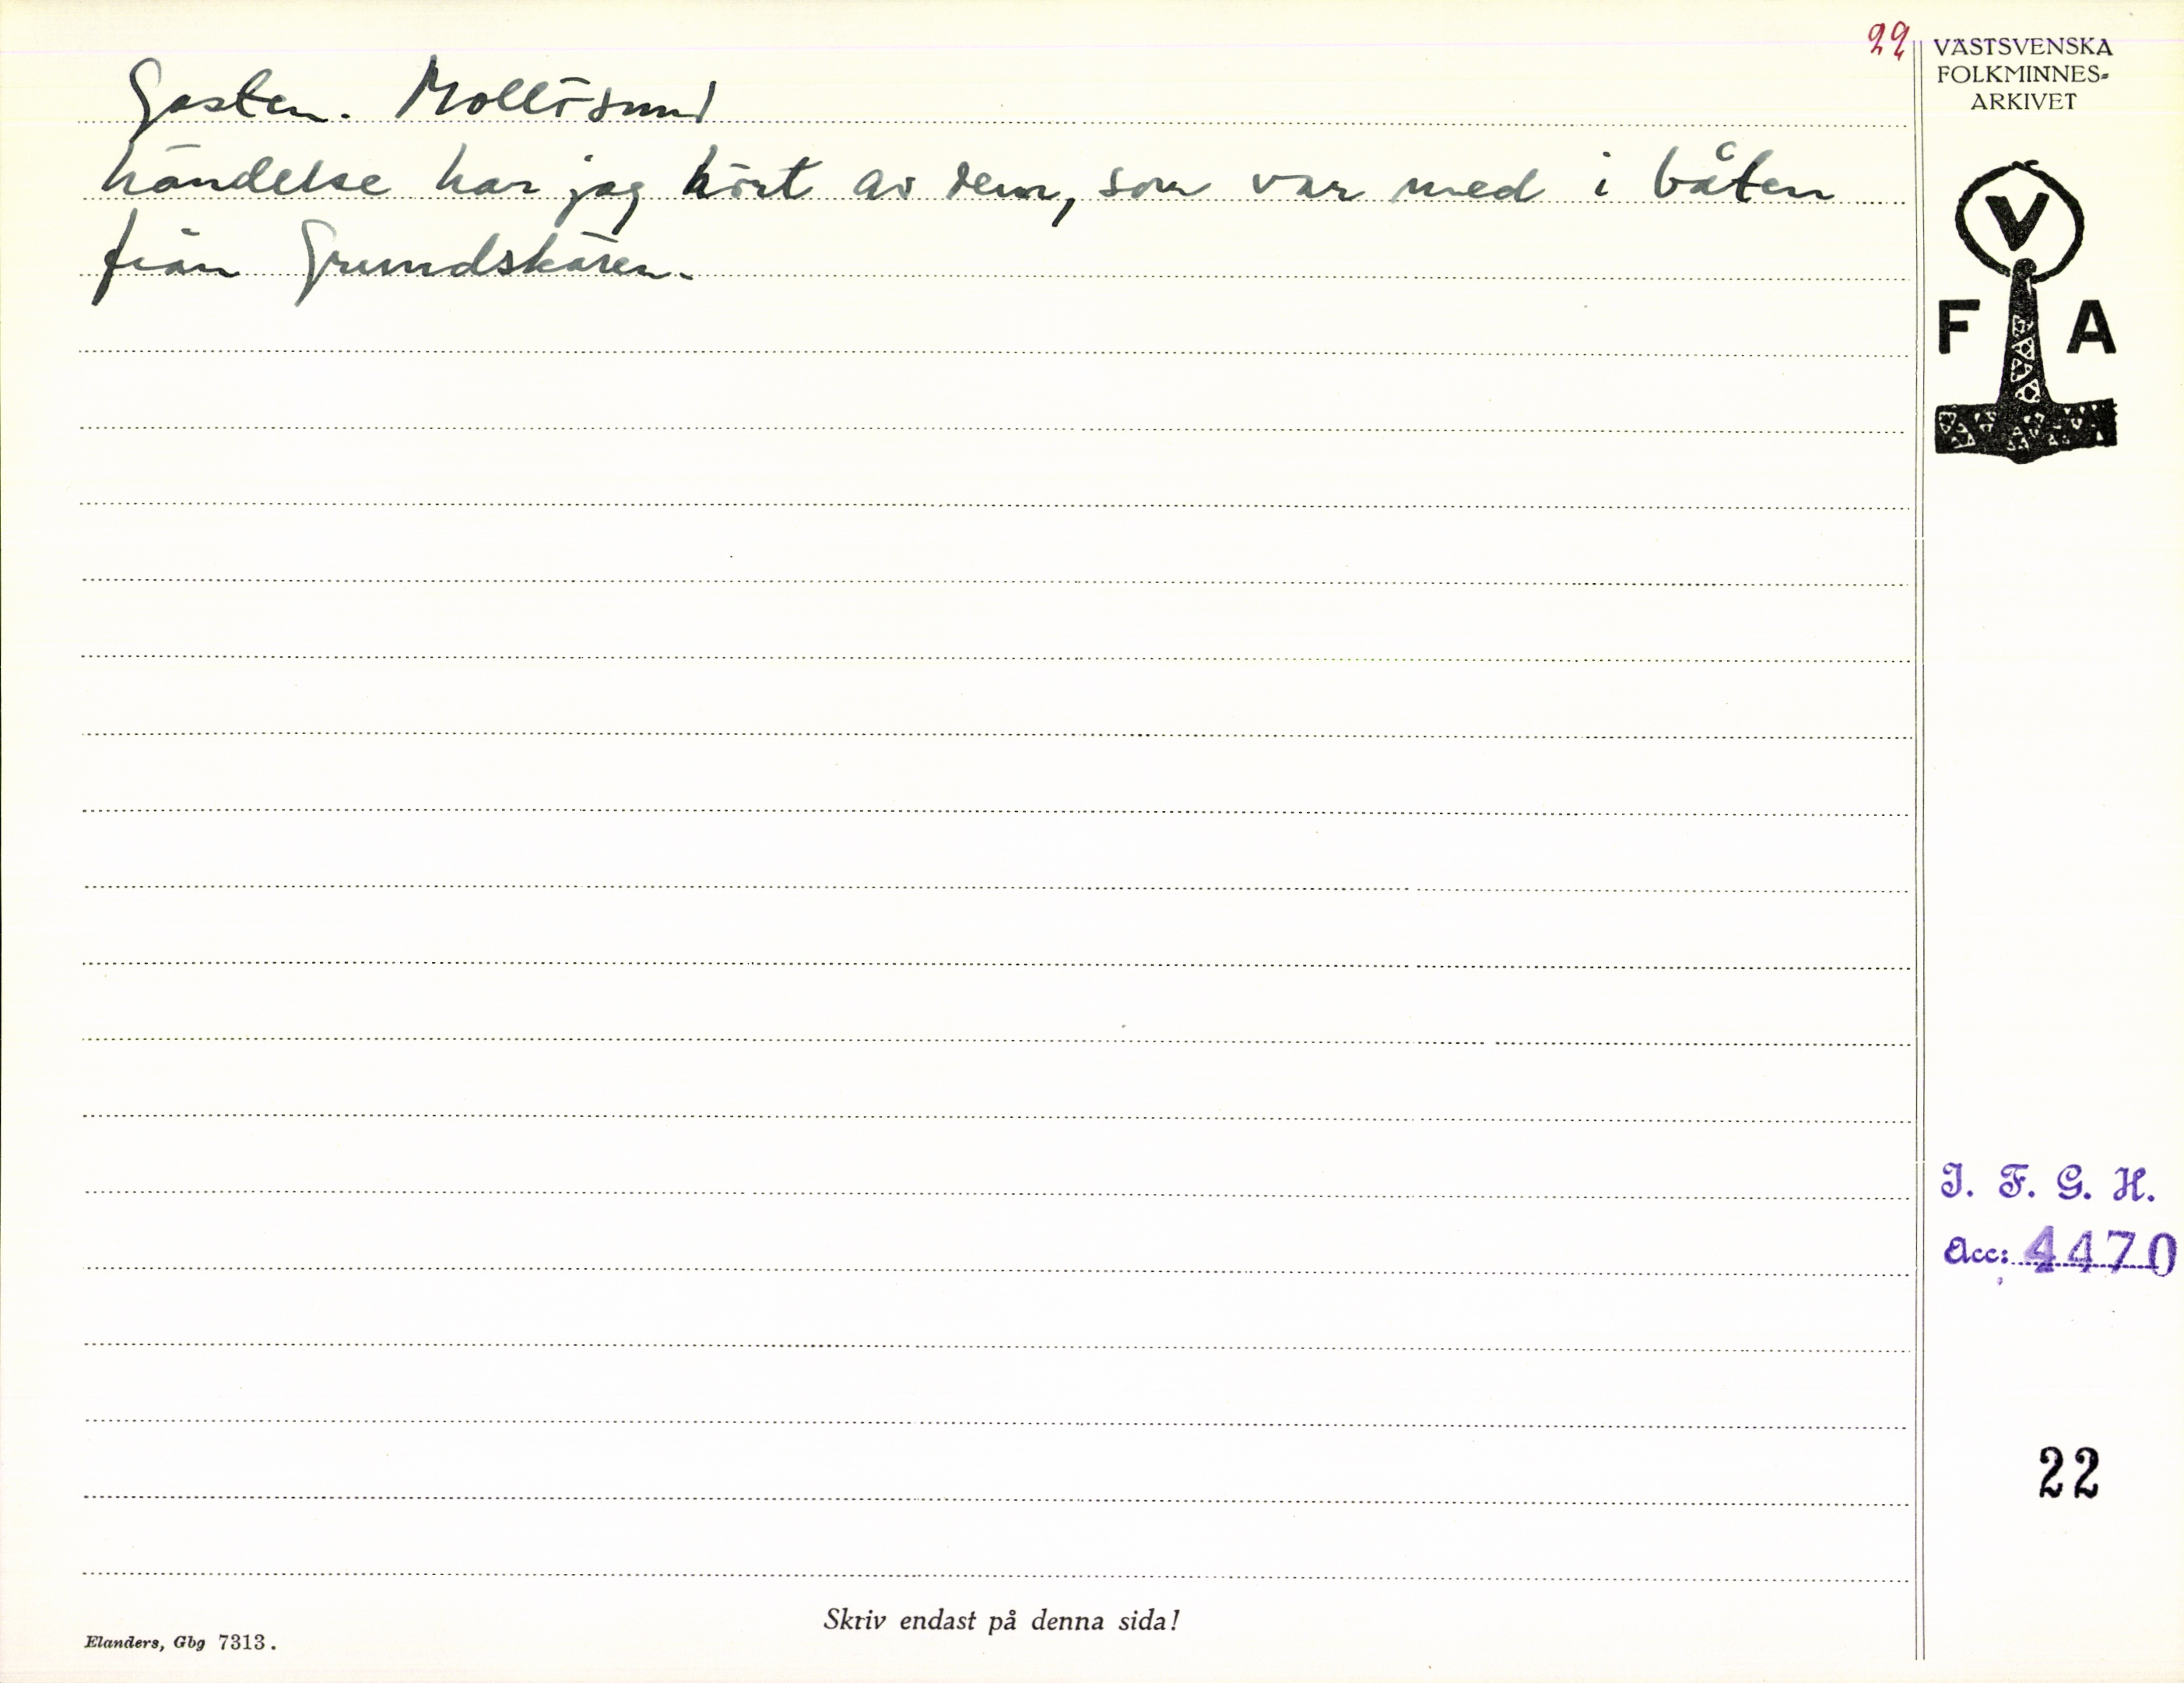 22
Gasten. Mollösund
händelse har jag hört av dem, som var med i båten
från Grundskären.
VÄSTSVENSKA
FOLKMINNES-
ARKIVET
V
F A
I. F. G. H.
Acc: 4470
22
Skriv endast på denna sida!
Elanders, Gbg 7313.